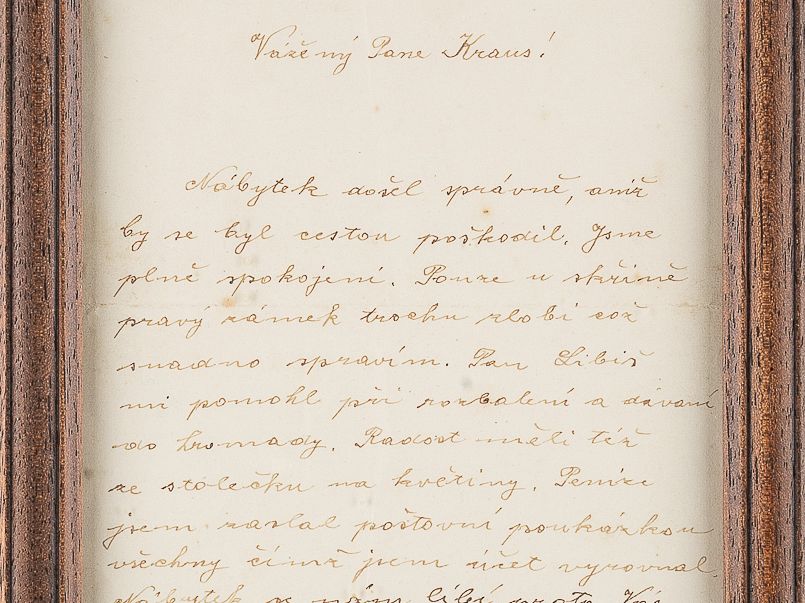 Vážený Pane Kraus!
Nábytek došel správně, aniž
by se byl cestou poškodil. Jsme
plně spokojení. Pouze u skříně
pravý zámek trochu zlobí což
snadno spravím. Pan Libiš
mi pomohl při rozbalení a dávaní
do hromady. Radost měli též
ze stolečku na květiny. Peníze
jsem zaslal poštovní poukázkou
všechny čímž jsem účet vyrovnal.
Nábytek se nám líbí proto Vás